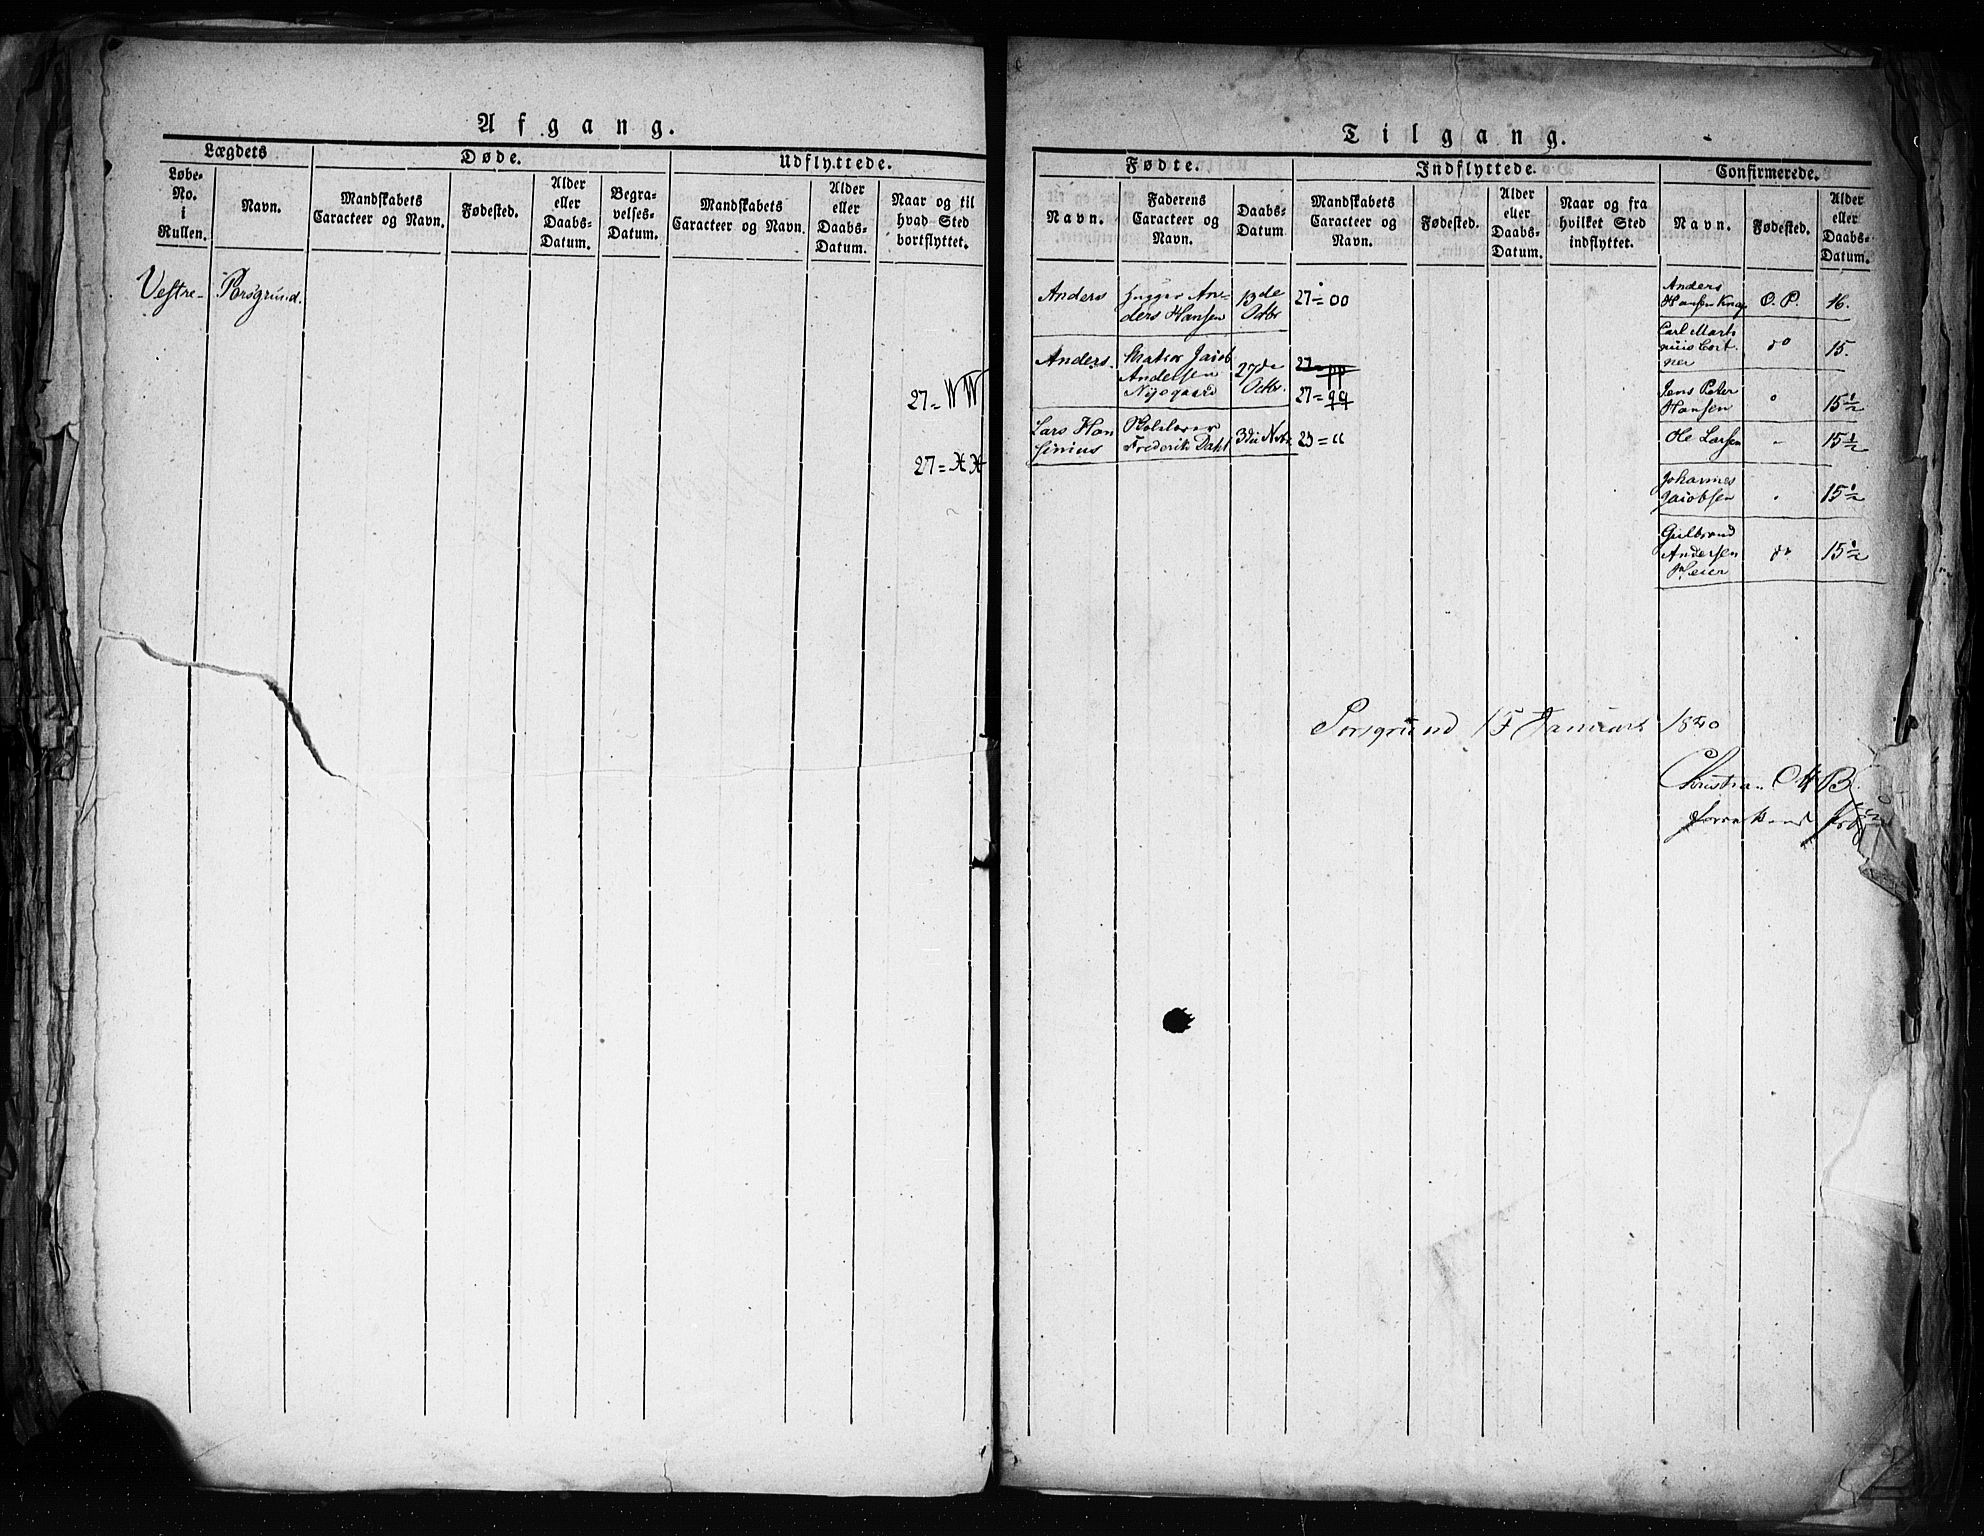 Afgang.
Lægdets
Døde.
Udflyttede.
Løbe-
No.
i
Rullen.
Navn.
Mandskabets
Caracteer og Navn.
Fødested.
Alder
eller
Daabs-
Datum.
Begra-
velses-
Datum.
Mandskabets
Caracteer og Navn.
Alder
eller
Daabs-
Datum.
Naar og til
hvad Sted
bortflyttet.
Vestre- Porsgrund.
27=WW
27=XX
Tilgang.
Fødte.
Indflyttede.
Confirmerede.
Navn.
Faderens
Caracteer og
Navn.
Daabs-
Datum
Mandskabets
Caracteer og
Navn.
Fødested.
Alder
eller
Daabs-
Datum.
Naar og fra
hvilket Sted
indflyttet.
Navn.
Fødested.
Alder
eller
Daabs-
Datum.
Anders
An-
ders Hansen
13de
Octbr
27=00
Anders.
Matros Jacob
Andersen
27de
Octbr.
27=pp
27=qq
Lars Han
sinius
Frederik Dahl
3die
Anders
Hansen
O. P.
16.
Carl
do
15.
Jens Peter
Hansen
15½
Ole Larsen
15½
Johannes
Jacobsen
15½
Gulbrand
Andersen
do
15½
Porsgrund 15 Januar 1840